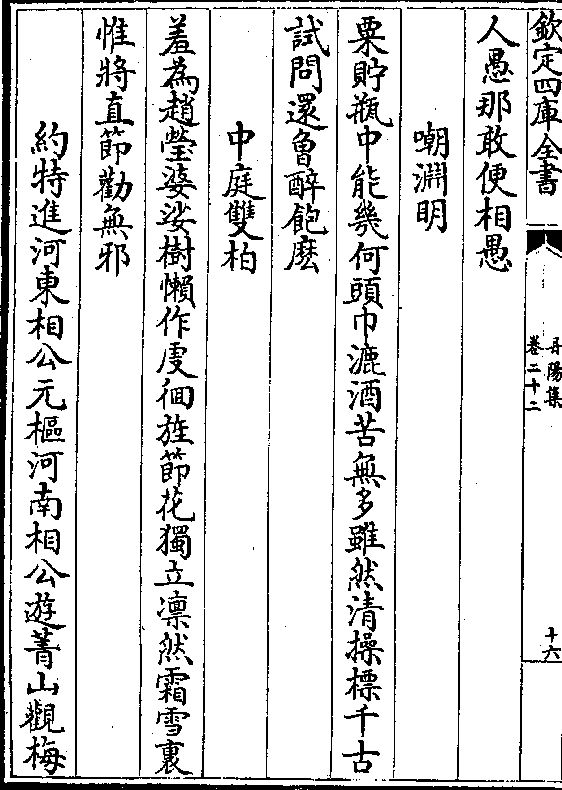 欽定四庫全書
丹陽集
卷二十二
十六
人愚那敢便相愚
嘲淵明
粟貯瓶中能幾何頭巾漉酒苦無多雖然清操標千古
試問還曾醉飽麽
中庭雙柏
羞為趙瑩婆娑樹懶作虔徊旌節花獨立凛然霜雪裏
惟將直節勸無邪
約特進河東相公元樞河南相公遊菁山觀梅